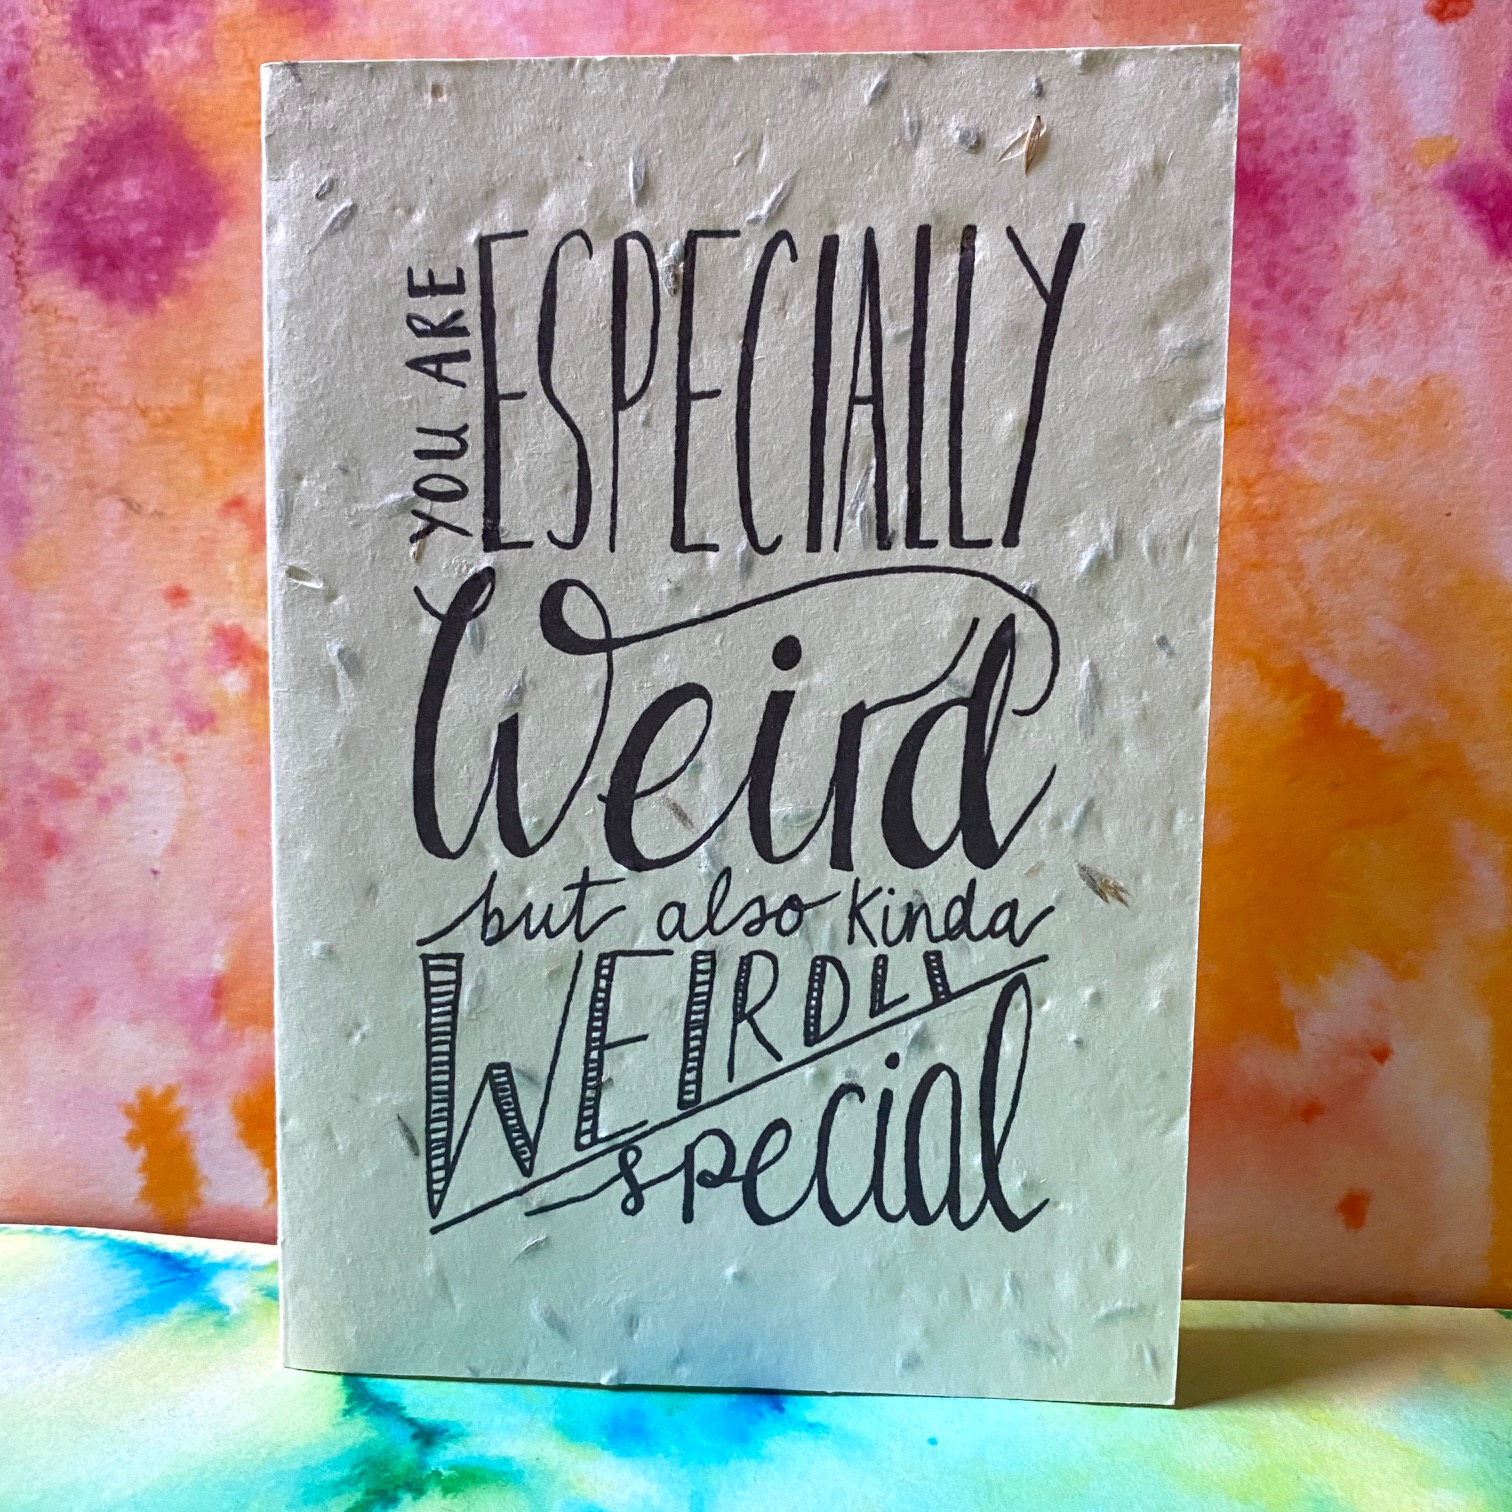 YOU ARE
ESPECIALLY
Weird
but also kinda
WEIRDLY
special